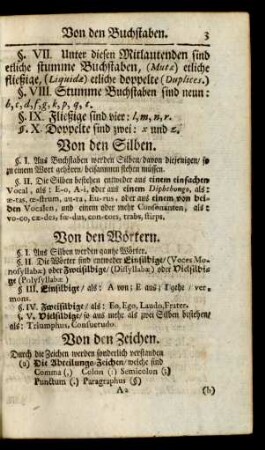 Von den Buchstaben. 3
§. VII. Unter diesen Mitlautenden sind
etliche stumme Buchstaben, (Mutæ) etliche
fließige, (Liquidæ) etliche doppelte (Duplices.)
§. VIII. Stumme Buchstaben sind neun:
b, c, d, f, g, k, p, q, t.
§. IX. Fließige sind vier: l, m, n, r.
§. X. Doppelte sind zwei: x und z.
Von den Silben.
§. I. Aus Buchstaben werden Silben/ davon diejenigen/ so
zu einem Wort gehören/ beisammen stehen müssen.
§. II. Die Silben bestehen entweder aus einem einfachen
Vocal, als: E-o, A-i, oder aus einem Diphthongo, als:
æ-tas, œ-strum, au-ra, Eu-rus, oder aus einem von bei-
den Vocalen, und einem oder mehr Consonanten, als:
vo-co, cæ-des, fœ-dus, con-tores, trabs, stirps.
Von den Wörtern.
§. I. Aus Silben werden gantze Wörter.
§. II Die Wörter sind entweder Einsilbige/ (Voces Mo-
nosyllabæ) oder Zweisilbige/ (Dissyllabæ) oder Vielsilbi-
ge (Polysyllabæ)
§ III. Einsilbige/ als: A von: E aus, I gehe/ ver-
§. IV. Zweisilbige/ als: Eo, Ego, Laudo, Frater.
§. V. Vielsilbige/ so aus mehr als zwei Silben bestehen/
als: Triumphus, Consuetudo.
Von den Zeichen.
Durch die Zeichen werden sonderlich verstanden
(a) Die Abteilungs-Zeichen/ welche sind
Comma (,) Colon (:) Semicolon (;)
Punctum (.) Paragraphus (§)
A 2 (b)